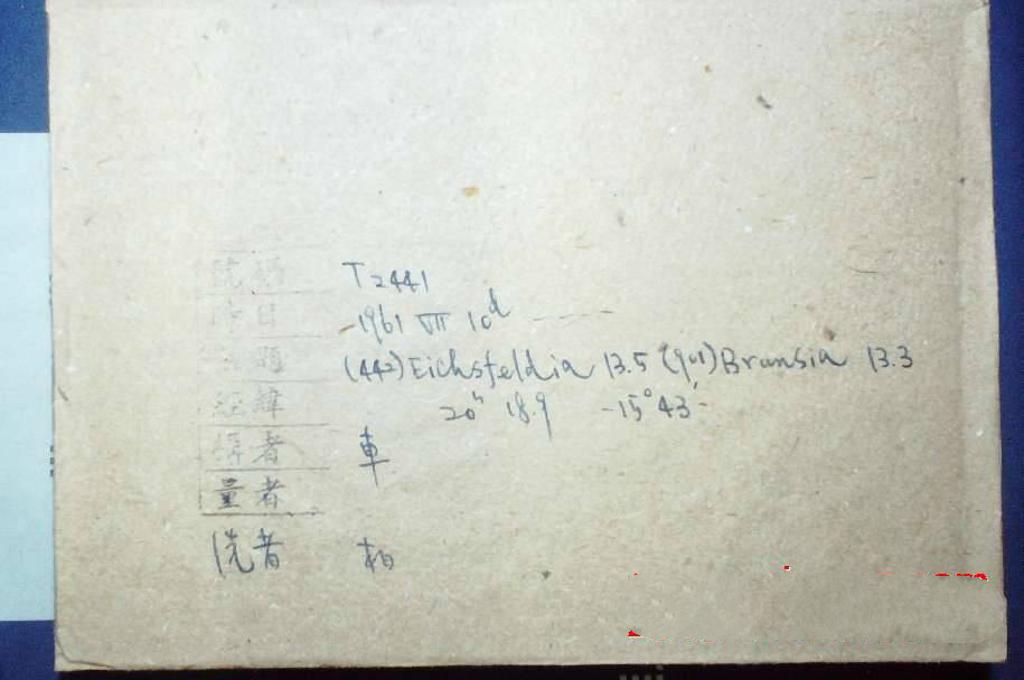 號碼 T2441
時日 1961 VII 10d
題 (442) Eichsfeldia 13.5 (901) Brunsia 13.3
經緯 20h 18.9 -15°43'
攝者 車
量者
洗者 柏